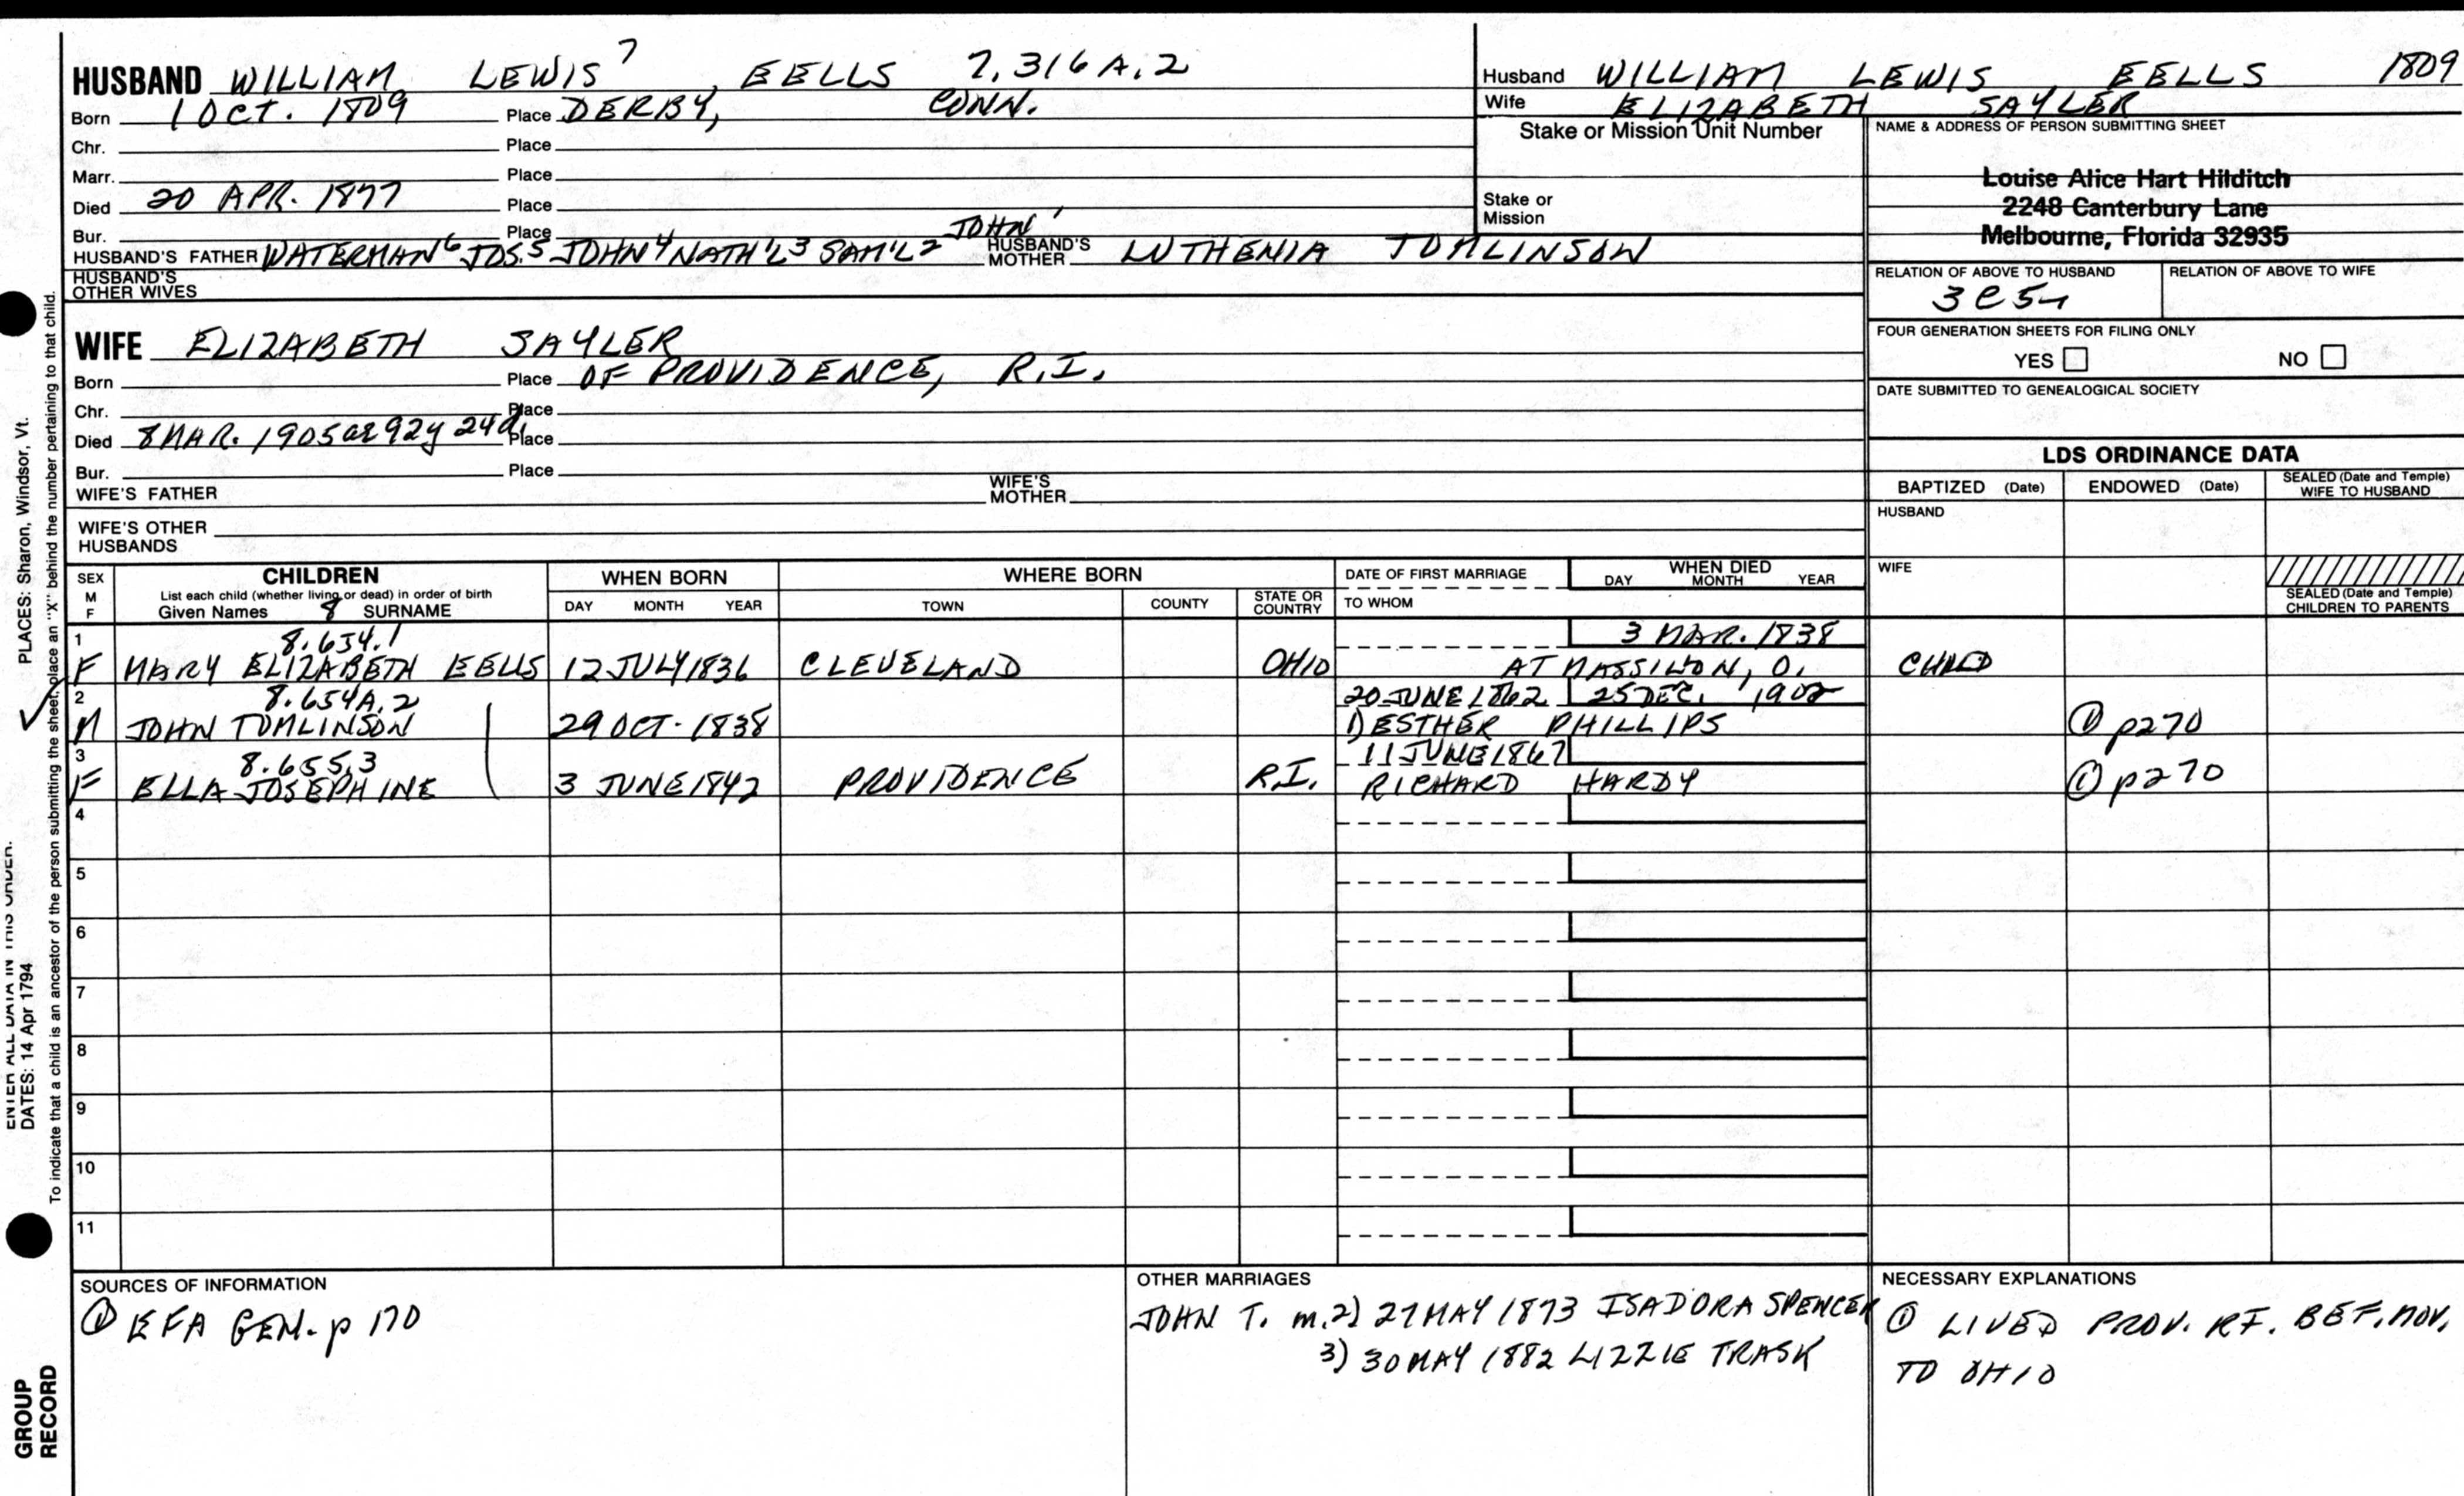 HUSBAND WILLIAM LEWIS 7, EELLS 7.316A.2
Born 1 OCT. 1809 Place DERBY, CONN.
Chr. Place
Marr. Place
Died 20 APR. 1877 Place
Bur. Place
HUSBAND'S FATHER WATERMAN 6 JOS. 5 JOHN 4 NATH'L 3 SAM'L 2 JOHN 1 HUSBAND'S MOTHER LUTHENIA TOMLINSON
HUSBAND'S OTHER WIVES
WIFE ELIZABETH SAYLER
Born Place OF PROVIDENCE, R.I.
Chr. Place
Died 8 MAR. 1905 ae 92y 24d. Place
Bur. Place
WIFE'S FATHER WIFE'S MOTHER
WIFE'S OTHER HUSBANDS
Husband WILLIAM LEWIS EELLS 1809
Wife ELIZABETH SAYLER
Stake or Mission Unit Number
Stake or Mission
NAME & ADDRESS OF PERSON SUBMITTING SHEET
Louise Alice Hart Hilditch
2248 Canterbury Lane
Melbourne, Florida 32935
RELATION OF ABOVE TO HUSBAND RELATION OF ABOVE TO WIFE
FOUR GENERATION SHEETS FOR FILING ONLY
YES NO
DATE SUBMITTED TO GENEALOGICAL SOCIETY
LDS ORDINANCE DATA
BAPTIZED (Date) ENDOWED (Date) SEALED (Date and Temple) WIFE TO HUSBAND
HUSBAND
WIFE
SEALED (Date and Temple) CHILDREN TO PARENTS
SEX M F CHILDREN WHEN BORN WHERE BORN DATE OF FIRST MARRIAGE WHEN DIED
List each child (whether living or dead) in order of birth
Given Names 8 SURNAME DAY MONTH YEAR TOWN COUNTY STATE OR COUNTRY TO WHOM DAY MONTH YEAR
1 8.654.1 3 MAR. 1838
F MARY ELIZABETH EELLS 12 JULY 1836 CLEVELAND OHIO AT MASSILLON, O. CHILD
2 8.654A.2 20 JUNE 1862 25 DEC. 1902
M JOHN TOMLINSON 29 OCT. 1838 1) ESTHER PHILLIPS ① p270
3 8.655.3 11 JUNE 1867
F ELLA JOSEPHINE 3 JUNE 1842 PROVIDENCE R.I. RICHARD HARDY ① p270
4
5
6
7
8
9
10
11
SOURCES OF INFORMATION
① EFA GEN. p 170
OTHER MARRIAGES
JOHN T. m. 2) 27 MAY 1873 ISADORA SPENCER
3) 30 MAY 1882 LIZZIE TRASK
NECESSARY EXPLANATIONS
① LIVED PROV. RI. BEF. MOV.
TO OHIO
PLACES: Sharon, Windsor, Vt.
DATES: 14 Apr 1794
To indicate that a child is an ancestor of the person submitting the sheet, place an "X" behind the number pertaining to that child.
ENTER ALL DATA IN THIS ORDER:
GROUP
RECORD